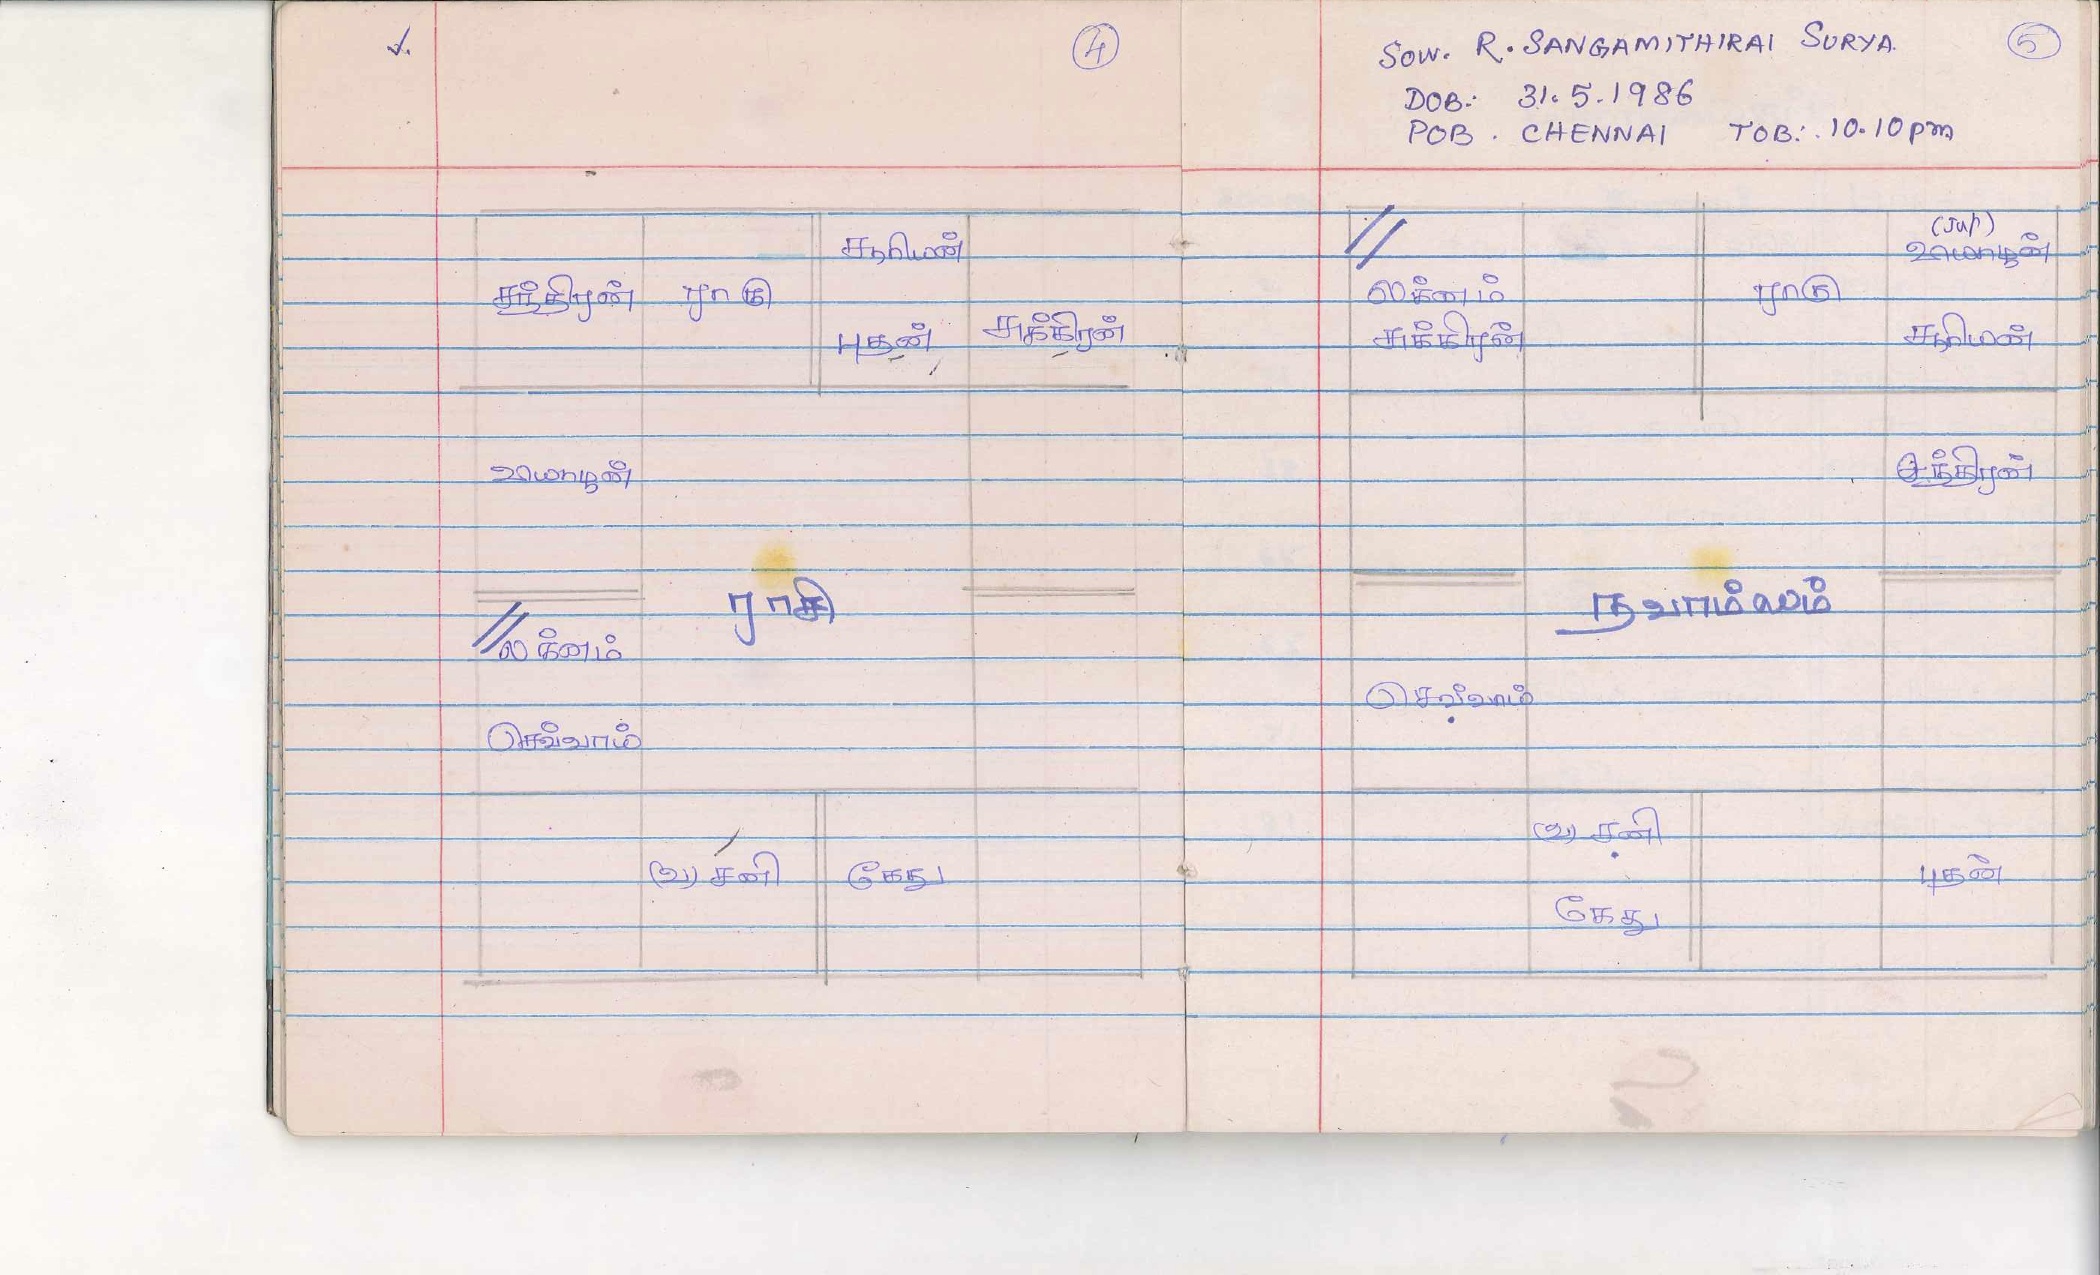 4
சூரியன்
சந்திரன் ராகு
புதன் சுக்கிரன்
வியாழன்
ராசி
லக்னம்
செவ்வாய்
(வ) சனி கேது
5
Sow. R. SANGAMITHIRAI SURYA
DOB: 31.5.1986
POB. CHENNAI TOB: 10.10pm
(Jup)
வியாழன்
லக்னம் ராகு
சுக்கிரன் சூரியன்
சந்திரன்
நவாம்ஸம்
செவ்வாய்
(வ) சனி
புதன்
கேது